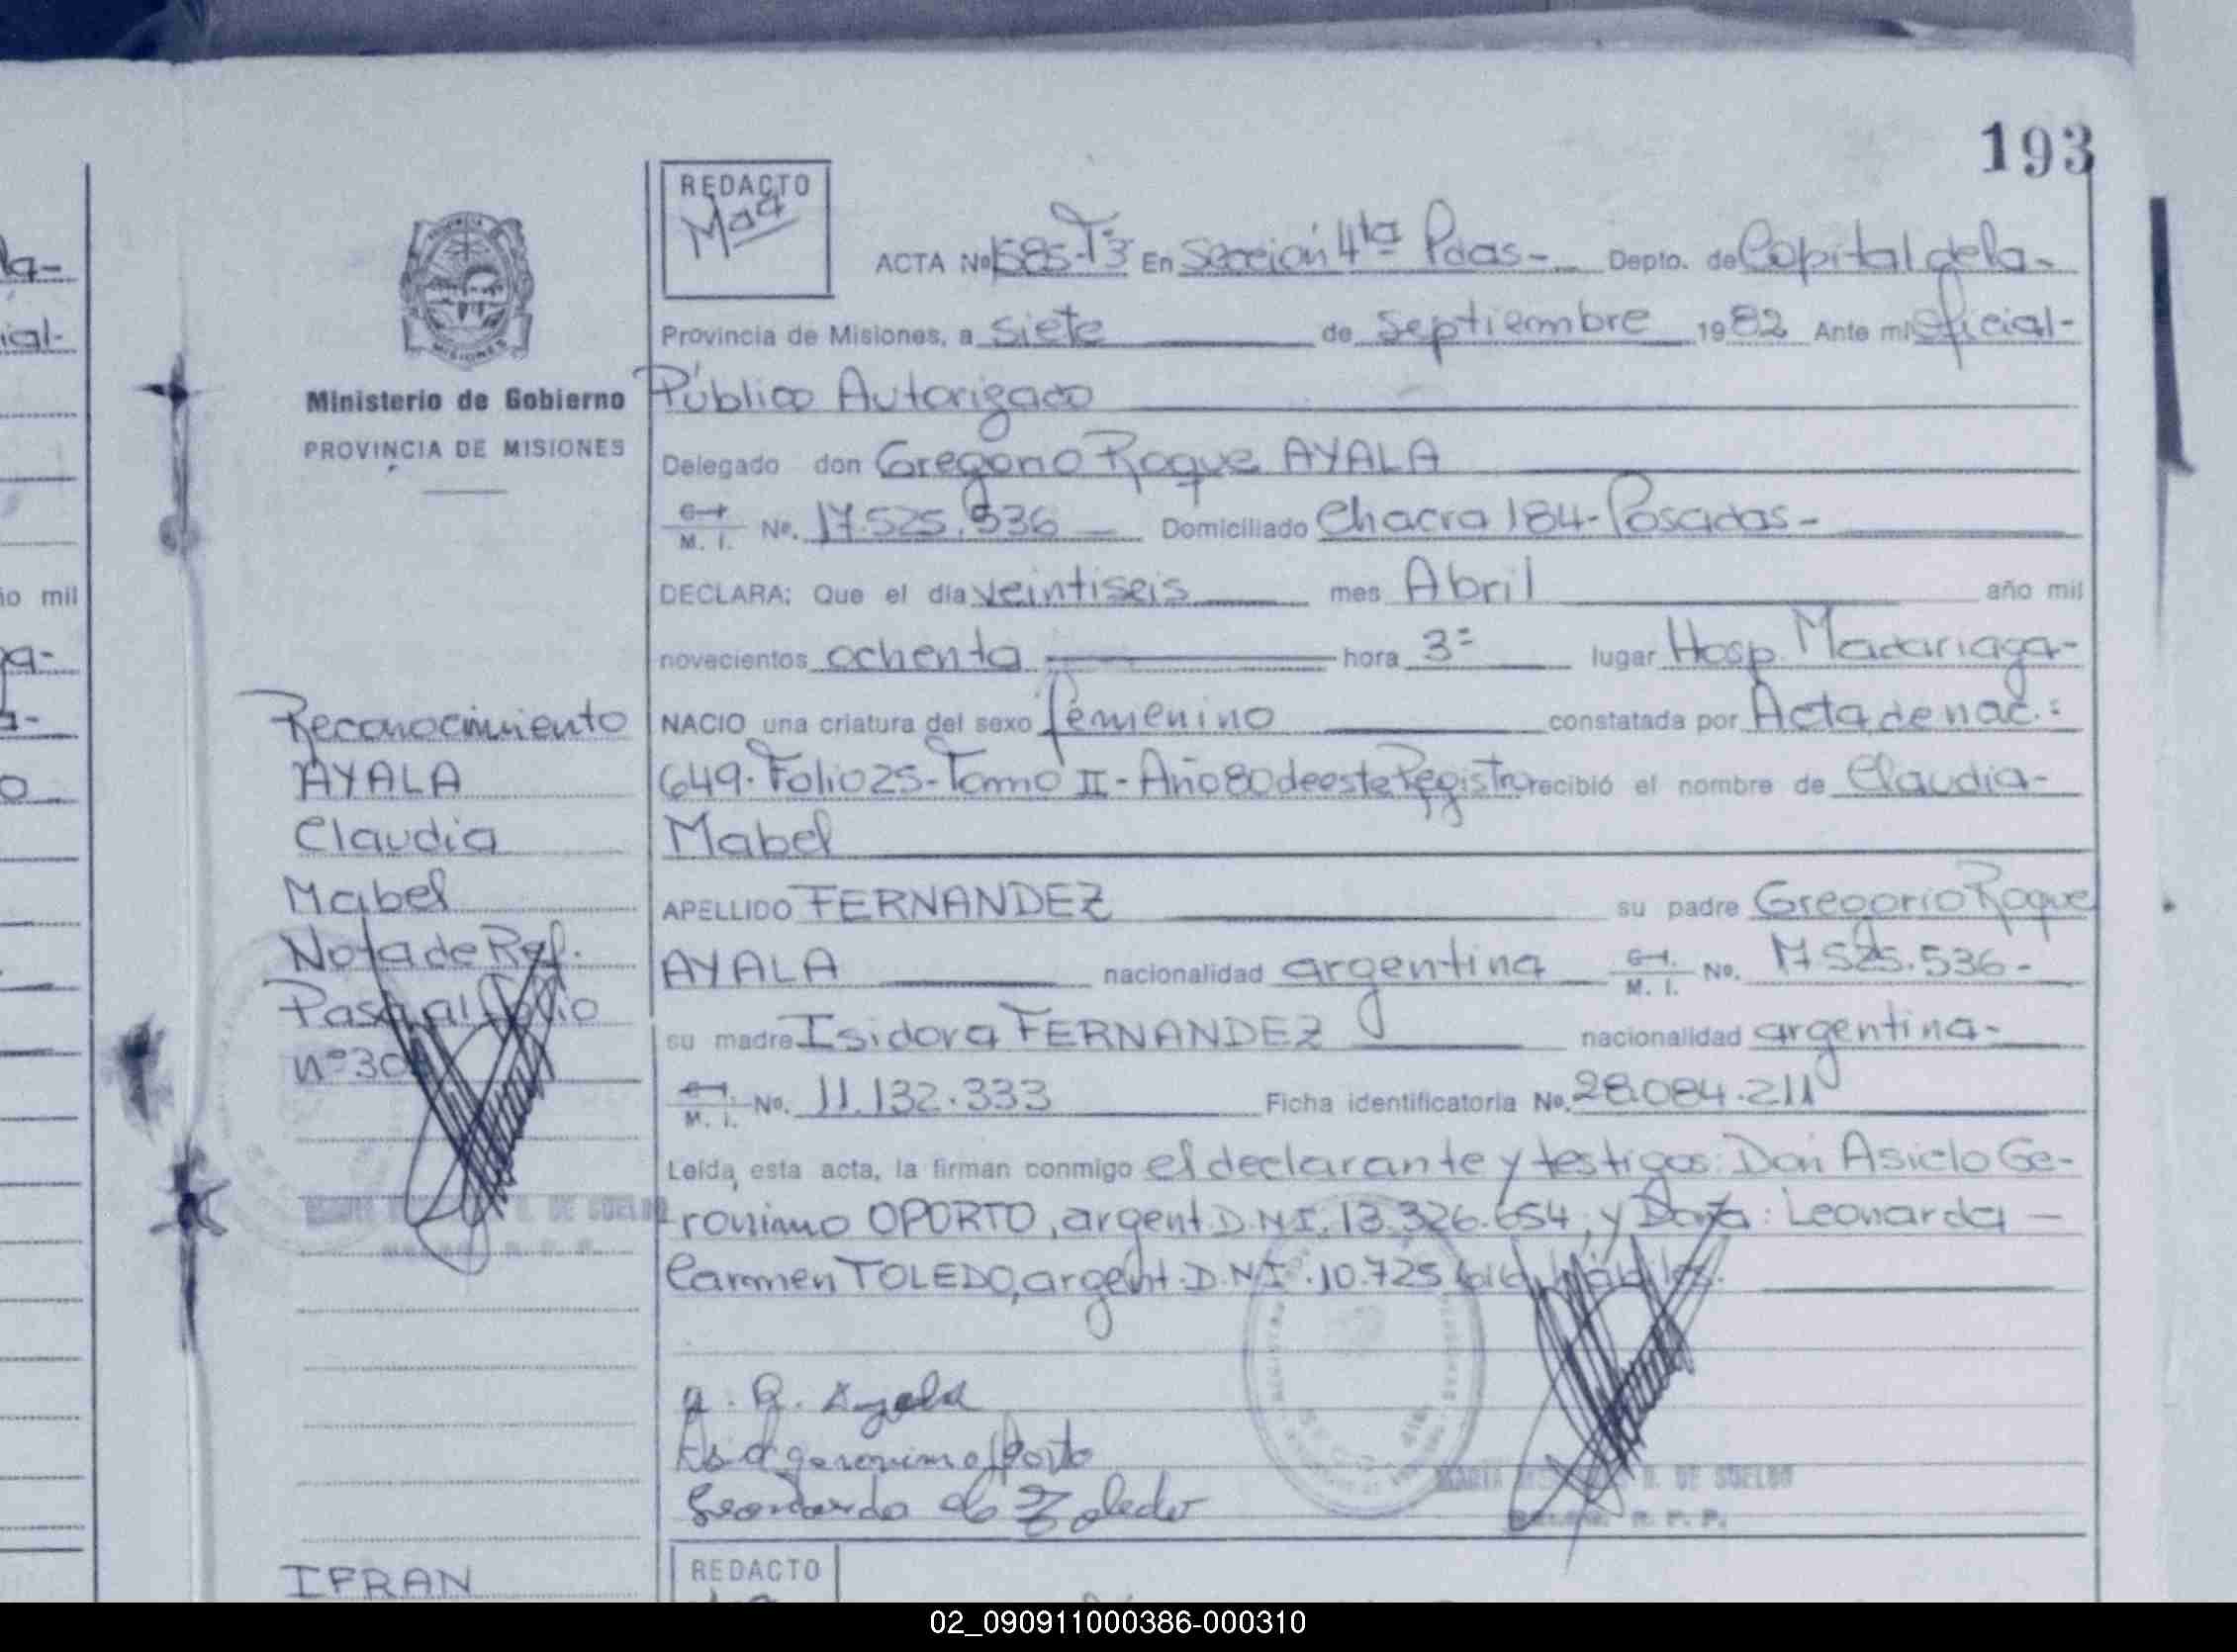 193
REDACTO
Maa
ACTA Nº 1585-T3 En Sección 4ta Pdas- Depto. de Capital de la-
Provincia de Misiones, a siete de Septiembre 1982 Ante mi Oficial-
Público Autorizado
Delegado don Gregorio Roque AYALA
M. I. No. 17.525.536 Domiciliado Chacra 184-Posadas-
DECLARA: Que el día veintiseis mes Abril año mil
novecientos ochenta hora 3= lugar Hosp. Madariaga-
NACIO una criatura del sexo femenino constatada por Acta de nac.:
649. Folio 25-Tomo II-Año 80 de este Registro recibió el nombre de Claudia-
Mabel
APELLIDO FERNANDEZ su padre Gregorio Roque
AYALA nacionalidad argentina M. I. No. 17 525.536-
su madre Isidora FERNANDEZ nacionalidad argentina-
M. I. No. 11.132.333 Ficha identificatoria No. 28.084.211
Leída esta acta, la firman conmigo el declarante y testigos: Don Asiclo Ge-
ronimo OPORTO, argent. D.N.I. 13.326.654, y Doña: Leonarda-
Carmen TOLEDO, argent. D.N.I. 10.725
Ayala
Leonarda de Toledo
DE SUELDO
MISIONES
Ministerio de Gobierno
PROVINCIA DE MISIONES
Reconocimiento
AYALA
Claudia
Mabel
Nota de Ref.
Pasa al folio
nº 30
DE SUELDO
IFRAN
REDACTO
la-
ial-
ño mil
ga-
02_090911000386-000310